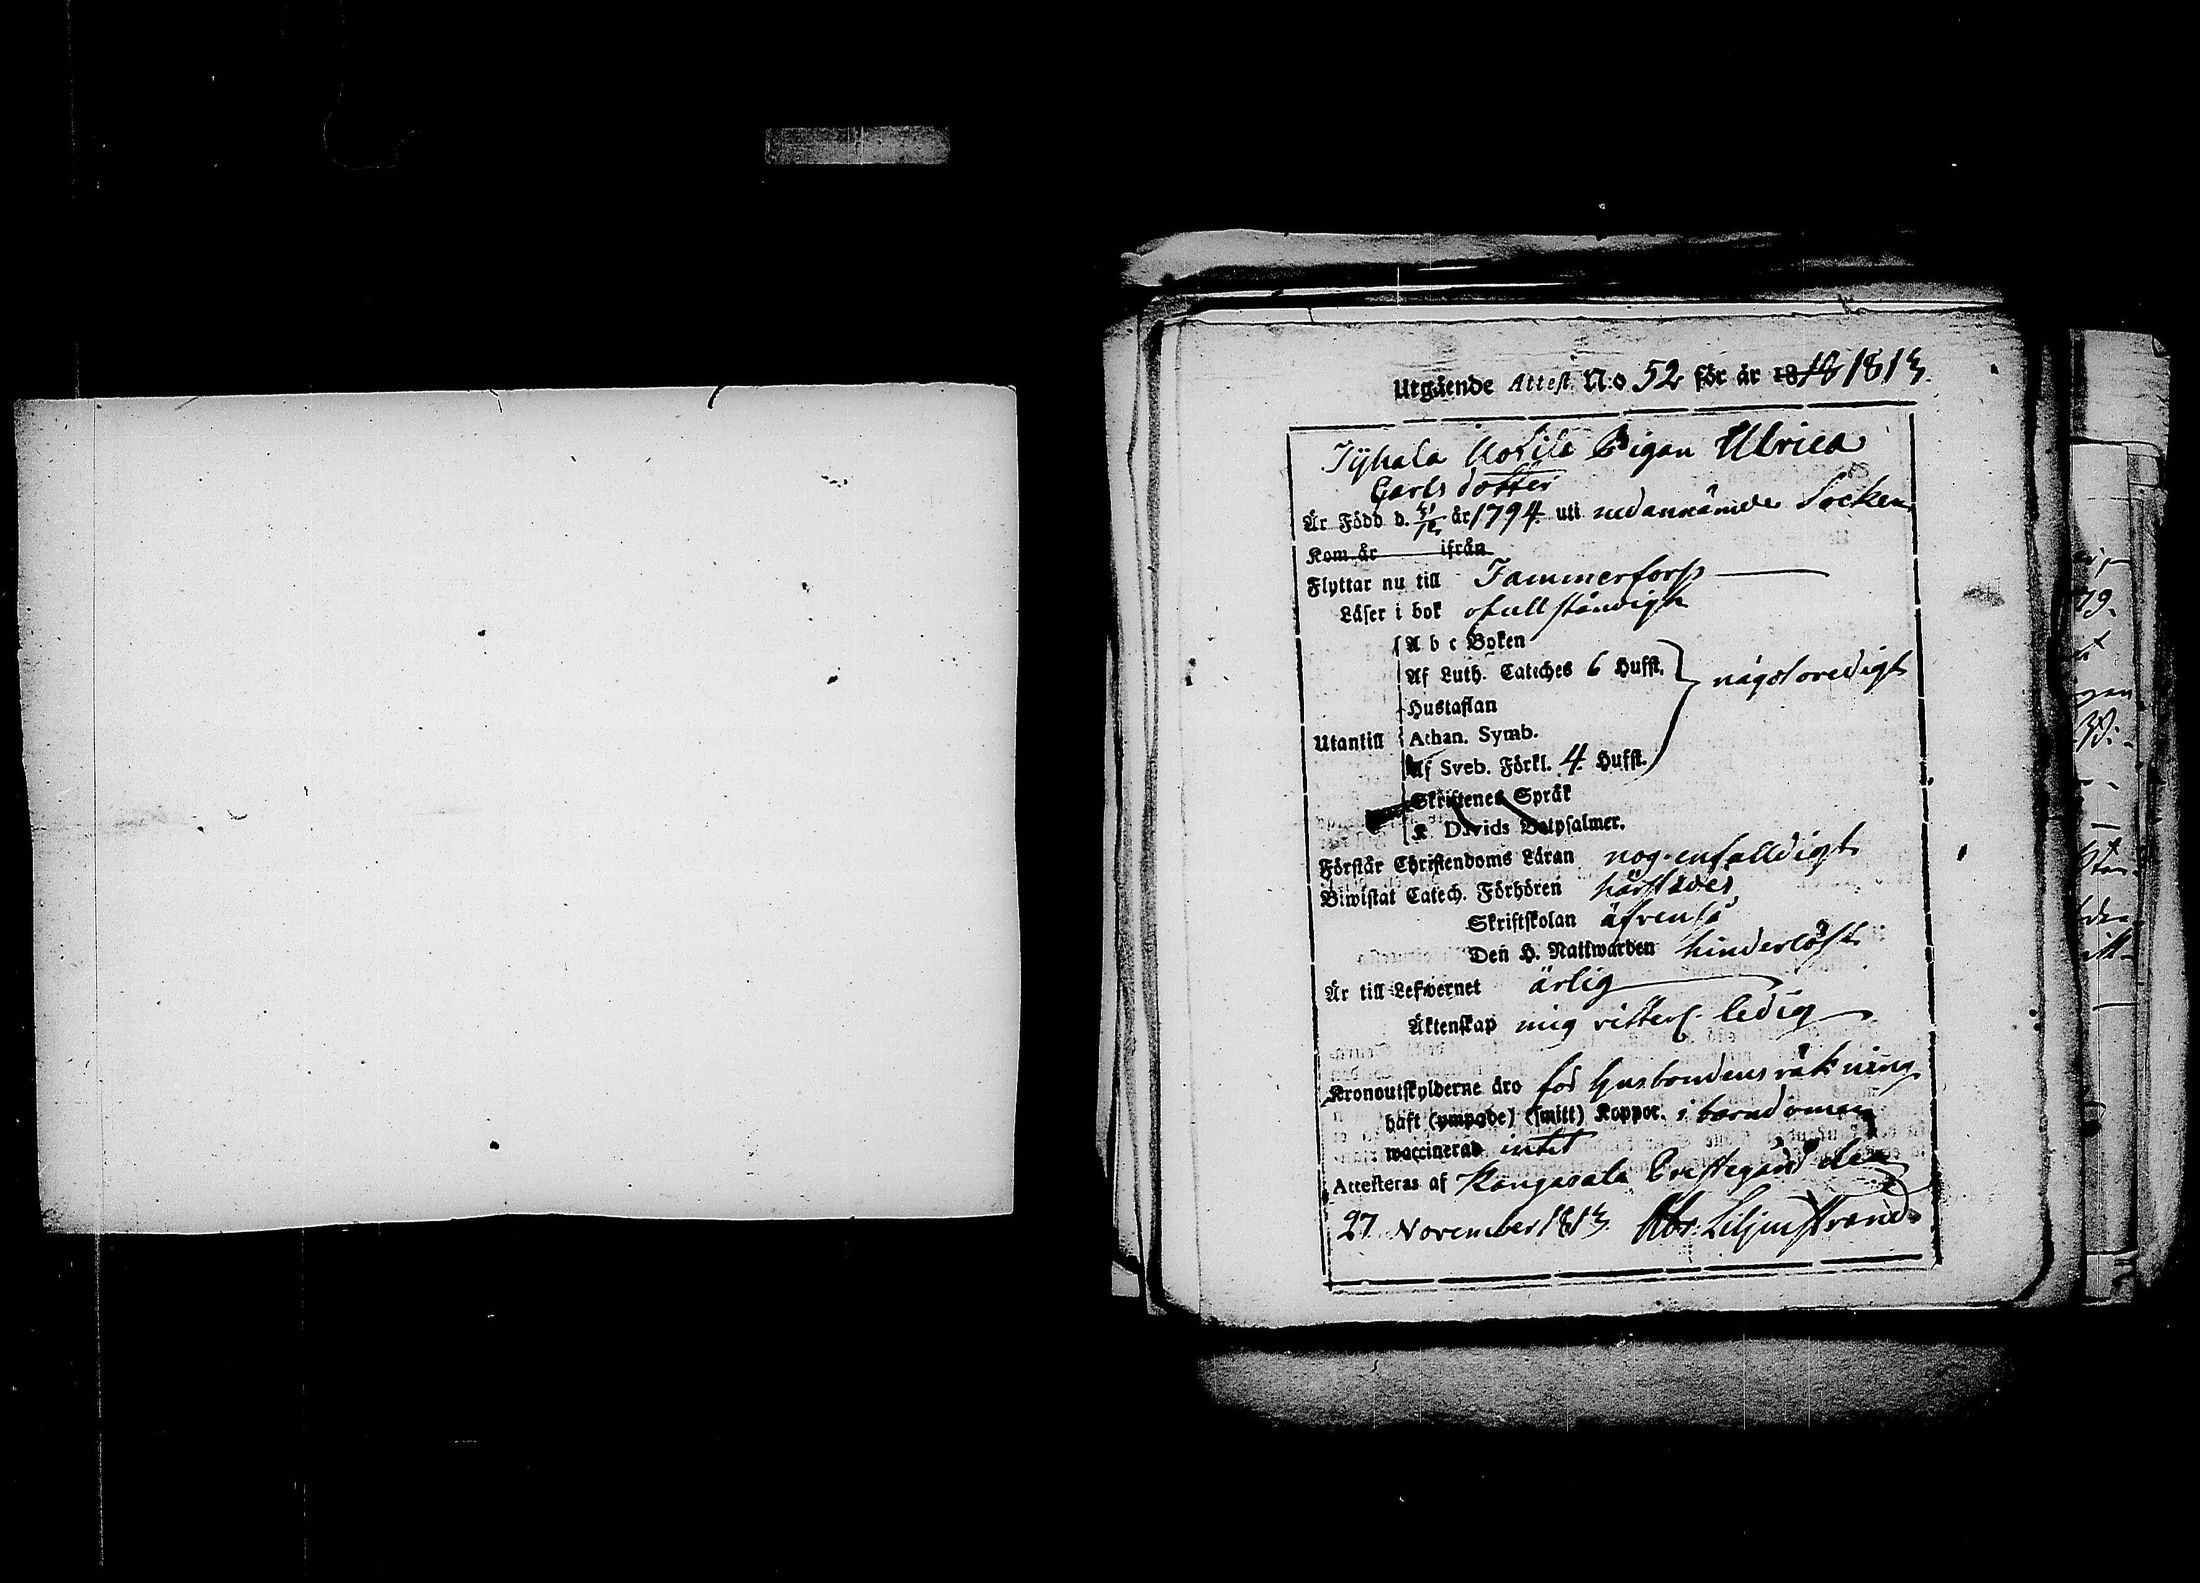 Utgående Attest. N:o 52 för år 1818 1813.
Tÿhala Uotila Pigan Ulrica
Carls dotter
Är Född d. år 1794 uti nedannämde Socken
Kom år ifrån
Flyttar nu till Tammerfors
Läser i bok ofullständigt
A b c Boken
Af Luth. Cateches 6 Hufst.
någol oredigt
Hustaflan
Utantill
Athan. Symb.
Af Sveb. Förkl. 4. Hufst.
Skriftenes Språk
K Davids Botpsalmer.
Förstår Christendoms Läran nog enfalldigt
Biwistat Catech. Förhören härstädes
Skriftskolan äfvenså
Den H. Nattwarden hinderlöst
Är till Lefwernet ärlig
Äktenskap mig vitterl. ledig
Kronoutskylderne äro för husbondens räkning
haft (ympade) (smitt) Koppor. i barndomen
waccinerad intet
Attesteras af Kangasala Prestegård den
27 November 1813 Abr. Liljenstrand